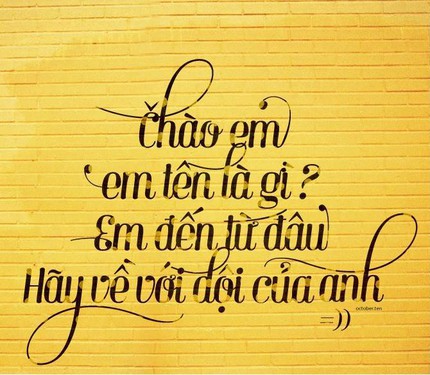 Chào em
em tên là gì ?
Em đến từ đâu
Hãy về với đội của anh
=))
october.ten